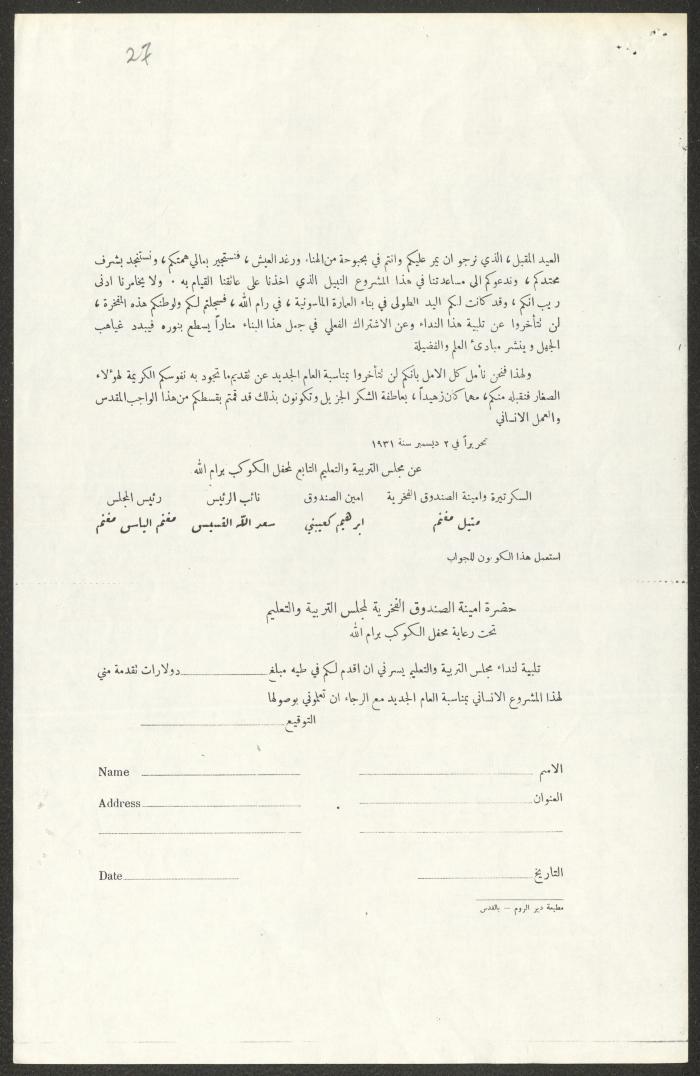 27
العيد المقبل، الذي نرجو ان يمر عليكم وانتم في بحبوحة من الهناء ورغد العيش، فنستجير بعالي همتكم، ونستنجد بشرف
محتدكم، وندعوكم الى مساعدتنا في هذا المشروع النبيل الذي اخذنا على عاتقنا القيام به. ولا يخامرنا ادنى
ريب انكم، وقد كانت لكم اليد الطولى في بناء العمارة الماسونية، في رام الله، فسجلتم لكم ولوطنكم هذه المفخرة،
لن تتأخروا عن تلبية هذا النداء وعن الاشتراك الفعلي في جعل هذا البناء مناراً يسطع بنوره فيبدد غياهب
الجهل وينشر مبادئ العلم والفضيلة
ولهذا فنحن نأمل كل الامل بأنكم لن تتأخروا بمناسبة العام الجديد عن تقديم ما تجود به نفوسكم الكريمة لهؤلاء
الصغار فنقبله منكم، مهما كان زهيداً، بعاطفة الشكر الجزيل وتكونون بذلك قد قمتم بقسطكم من هذا الواجب المقدس
والعمل الانساني
تحريراً في ٢ ديسمبر سنة ١٩٣١
عن مجلس التربية والتعليم التابع لمحفل الكوكب برام الله
السكرتيرة وامينة الصندوق الفخرية امين الصندوق نائب الرئيس رئيس المجلس
متيل مغنم ابرهيم كعيبني سعد الله القسيس مغنم الياس مغنم
استعمل هذا الكوبون للجواب
حضرة امينة الصندوق الفخرية لمجلس التربية والتعليم
تحت رعاية محفل الكوكب برام الله
تلبية لنداء مجلس التربية والتعليم يسرني ان اقدم لكم في طيه مبلغ دولارات تقدمة مني
لهذا المشروع الانساني بمناسبة العام الجديد مع الرجاء ان تعلموني بوصولها
التوقيع
الاسم Name
العنوان Address
التاريخ Date
مطبعة دير الروم — بالقدس